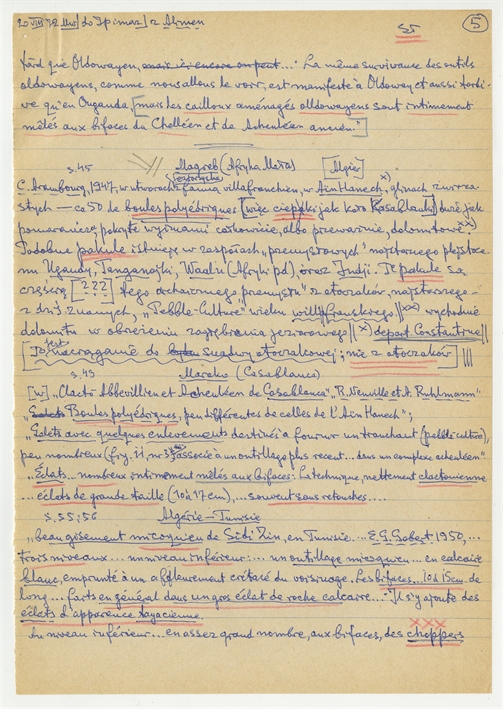 20 VIII 72
S5
5
tard que Oldowayen, mais ici encore on peut...· La même survivance des outils
oldowayens, comme nous allons le voir, est manifeste à Oldoway et aussi tardi-
ve qu'en Ouganda [mais les cailloux aménagés olldowayens sont intimement
mêlés aux bifaces du Chelléen et de Acheuléen ancien."]
s. 45
Magreb (Afryka Mała)
[Algier]
C. Arambourg, 1947, w utworach z fauną villafranchien, w Ain Hanech, x)
stych — ca 50 de boules polyédriques [więc ciepłki jak koło Kasablanki] dwie jak
pomarańcze pokryte wyżinami całkowicie, albo przeważnie, dolomitowe.
Podobne pakule istnieją w zespołach „przemysłowych" najstarszego plejstoce-
nu Ugandy, Tanganajki, Waalu (Afryki pd), oraz Indji. Te pakule są
częścią [???] tego archaicznego „przemysłu" z otoczaków, najstarszego -
z dziś znanych, „Pebble-Culture" wieku villafranskiego || xx) wychodnie
dolomitu w obrzeżeniu zagłębienia jeziorowego || x) depart Constantine ||
[To jest nacraganie do suadwy otoczakowej; nie z otoczaków] |||
s. 43
Maroko (Casablanca)
[w] „Clacto Abbevillien et Acheuléen de Casablanca" „R. Neuville et A. Ruhlmann"
„Eclats Boules polyédriques, peu différentes de celles de l'Ain Hanech";
„Eclets avec quelques enlevements destinés a fournir un tranchant (pebble culture),
peu nombreux (fig. ii, nr 3) associé à un outillage plus recent... dans un complexe acheuléen"
„Éclats... nombreux intimement mêlés aux bifaces: La technique, nettement clactonienne
... éclats de grande taille (10 à 17 cm), ... souvent sans retouches....
s. 55; 56
Algérie – Tunisie
„beau gisement micoquien de Sidi Zin, en Tunisie... E.G. Gobert 1950,...
trois niveaux... un niveau inférieur:... un outillage micoquien... en calcaire
blanc, emprunté à un affleurement crétacé du voisinage. Les bifaces... 10 à 15 cm. de
long... faits en général dans un gros éclat de roche calcaire..." Il s'y ajoute des
éclats d'apparence tayacienne.
xxx
Au niveau inférieur... en assez grand nombre, aux bifaces, des choppers